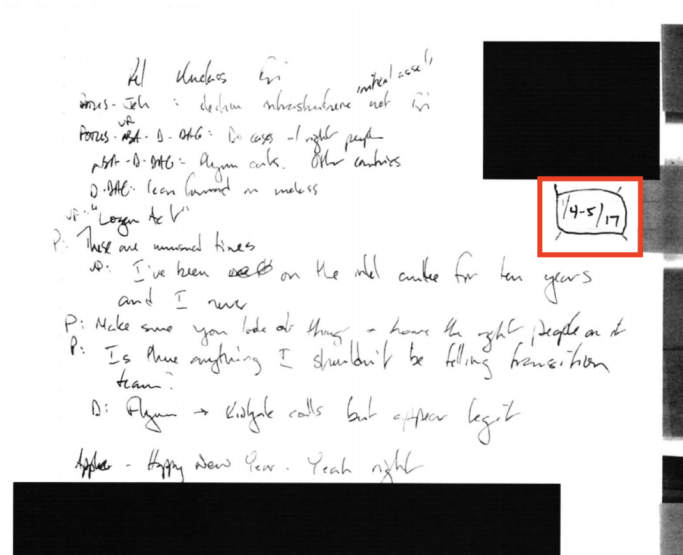 initial assets
Rel Unclass
POTUS - Jeh : election infrastructure not
POTUS - VP - NSA - D - DAG: cases - right people
NSA - D - DAG: Flynn cuts. Other countries
D-DAG: lean forward on unclass
1/4-5/17
VP: "Logan Act"
P: These are unusual times
VP: I've been on the intel cmttee for ten years
and I never
P: Make sure you look at things + have the right people on it
P: Is there anything I shouldn't be telling transition
team?
D: Flynn → Kislyak calls but appear legit
- Happy New Year. Yeah right